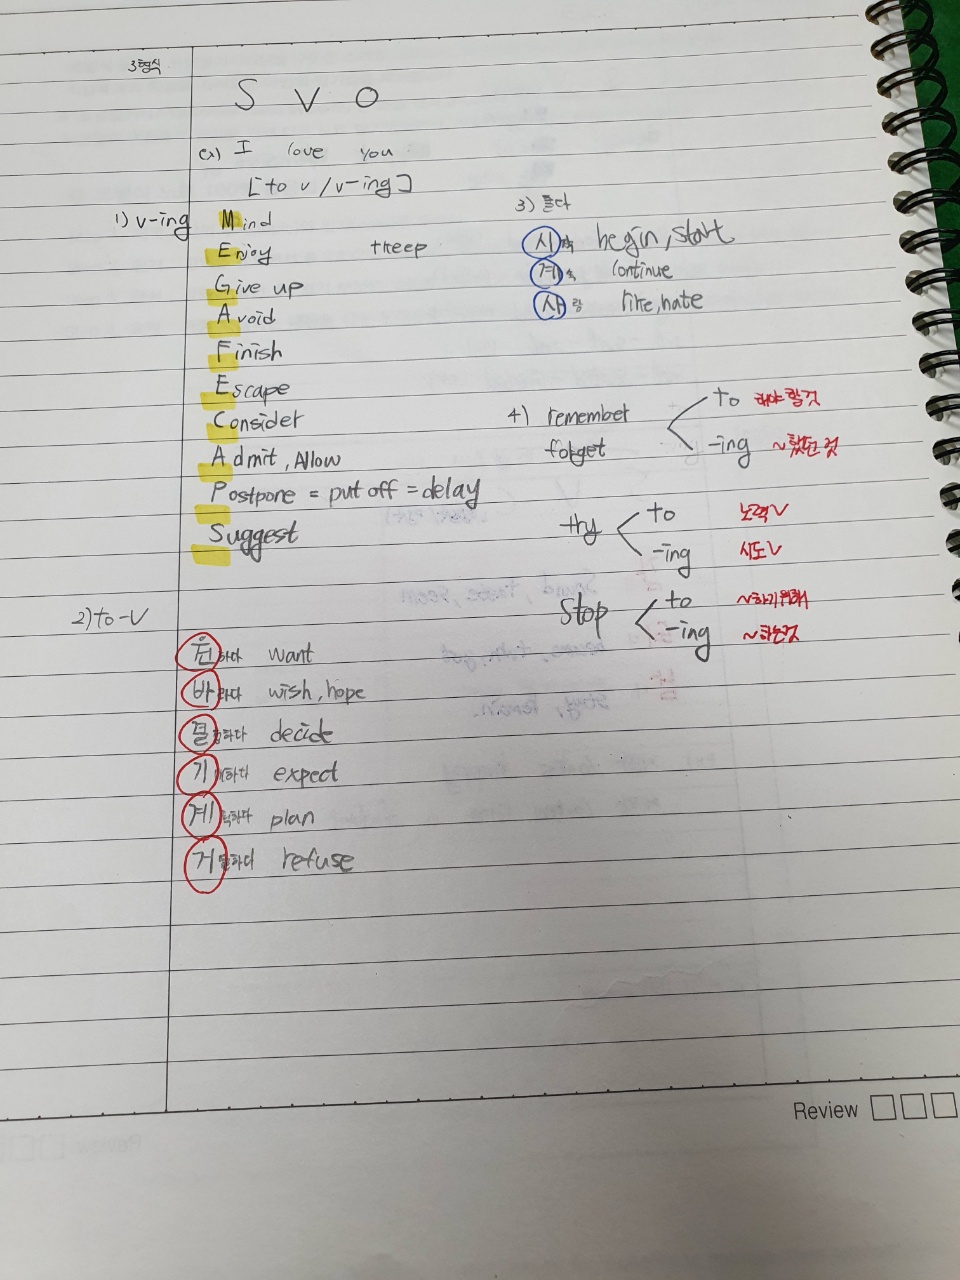 3형식
S V O
ex) I love you
[to v / v-ing]
1) v-ing
Mind
Enjoy +keep
Give up
Avoid
Finish
Escape
Consider
Admit, Allow
Postpone = put off = delay
Suggest
2) to-V
원하다 want
바라다 wish, hope
결정하다 decide
기대하다 expect
계획하다 plan
거절하다 refuse
3) 둘다
시작 begin, start
계속 continue
사랑 like, hate
4) remember
forget
to 해야 할 것
-ing ~했던 것
try
to 노력V
-ing 시도V
Stop
to ~하기위해
-ing ~하는것
Review